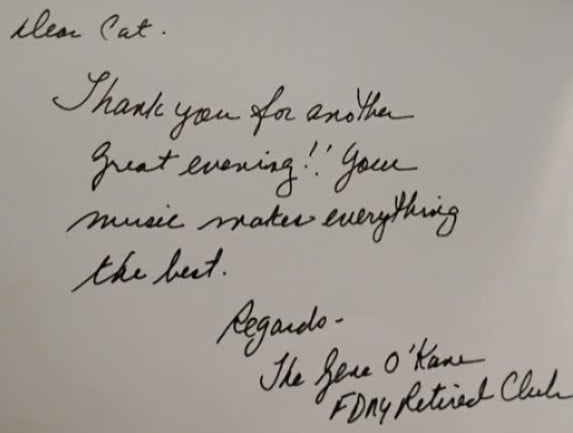 Dear Cat.
Thank you for another
great evening!! Your
music makes everything
the best.
Regards-
The Gene O'Kane
FDNY Retired Club